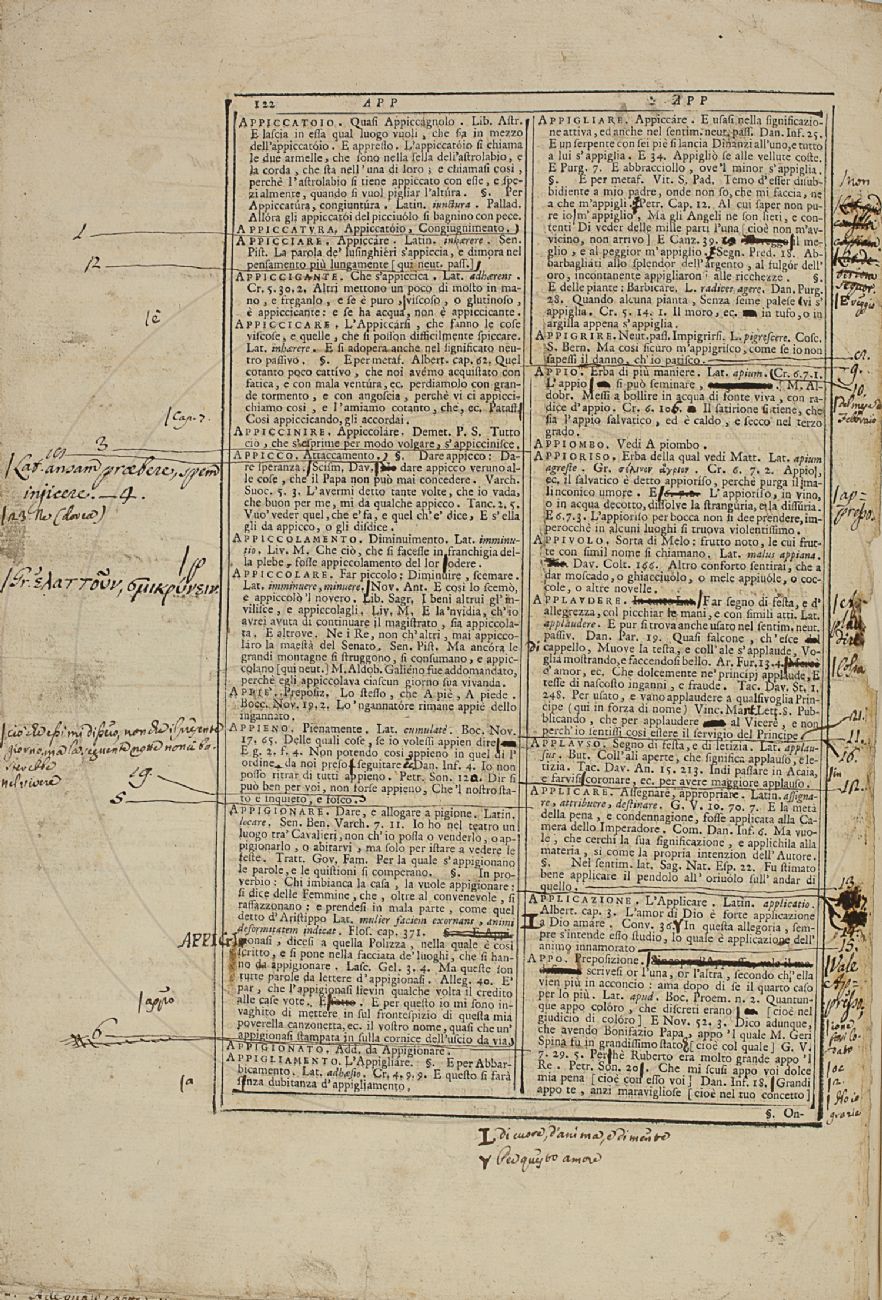 122 APP
APPICCATOIO. Quasi Appiccagnolo. Lib. Astr.
E lascia in essa qual luogo vuoli, che sia in mezzo
dell'appiccatóio. E appresso. L'appiccatóio si chiama
le due armelle, che sono nella sella dell'astrolabio, e
la corda, che sta nell'una di loro; e chiamasi così,
perchè l'astrolabio si tiene appiccato con esse, e spe-
zialmente, quando si vuol pigliar l'altúra. §. Per
Appiccatúra, congiuntúra. Latin. junctura. Pallad.
Allóra gli appiccatói del picciuólo si bagnino con pece.
APPICCATVRA, Appiccatóio, Congiugnimento.
APPICCIARE. Appiccàre. Latin. inhærere. Sen.
Pist. La parola de' lusinghièri s'appiccia, e dimora nel
pensamento più lungamente [qui neut. pass.]
APPICCICANTE. Che s'appiccica. Lat. adhærens.
Cr. 5. 30. 2. Altri mettono un poco di mosto in ma-
no, e freganlo, e se è puro, viscoso, o glutinoso,
è appiccicante: e se ha acqua, non è appiccicante.
APPICCICARE. L'Appiccàrsi, che fanno le cose
viscose, e quelle, che si posson difficilmente spiccare.
Lat. inhærere. E si adopera anche nel significato neu-
tro passivo. §. E per metaf. Albert. cap. 62. Quel
cotanto poco cattivo, che noi avémo acquistato con
fatica, e con mala ventúra, ec. perdiamolo con gran-
de tormento, e con angoscia, perchè vi ci appicci-
chiamo così, e l'amiamo cotanto, che, ec. Pataff.
Così appiccicando, gli accordai.
APPICCINIRE. Appiccoláre. Demet. P. S. Tutto
ciò, che s'esprime per modo volgare, s'appiccinisce.
APPICCO. Attaccamento. §. Dare appicco: Da-
re speranza. Scism, Dav. dare appicco veruno al-
le cose, che il Papa non può mai concedere. Varch.
Suoc. 5. 3. L'avermi detto tante volte, che io vada,
che buon per me, mi da qualche appicco. Tanc. 2. 5.
Vuo' veder quel, che e' fa, e quel ch'e' dice, E s'ella
gli da appicco, o gli disdice.
APPICCOLAMENTO. Diminuimento. Lat. imminu-
tio. Liv. M. Che ciò, che si facesse in franchigia del-
la plebe, fosse appiccolamento del lor podere.
APPICCOLARE. Far piccolo: Diminuire, scemare.
Lat. imminuere, minuere. Nov. Ant. E così lo scemò,
e appiccolò 'l novero. Lib. Sagr. I beni altrui gl'in-
vilisce, e appiccolagli. Liv. M. E la 'nvidia, ch'io
avrei avuta di continuare il magistrato, sia appiccola-
ta. E altrove. Ne i Re, non ch'altri, mai appicco-
láro la maestà del Senato. Sen. Pist. Ma ancóra le
grandi montagne si struggono, si consumano, e appic-
colano [qui neut.] M. Aldob. Galiéno fue addomandato,
perchè egli appiccolava ciascun giorno sua vivanda.
APPIE'. Preposiz. Lo stesso, che A piè, A piede.
Bocc. Nov. 19. 2. Lo 'ngannatóre rimane appiè dello
ingannato.
APPIENO. Pienamente. Lat. cumulatè. Boc. Nov.
17. 65. Delle quali cose, se io volessi appien dire
E g. 2. f. 4. Non potendo così appieno in quel dì l'
ordine da noi preso seguitare. Dan. Inf. 4. Io non
posso ritrar di tutti appieno. Petr. Son. 120. Dir si
può ben per voi, non forse appieno, Che 'l nostro sta-
to è inquieto, e fosco.
APPIGIONARE. Dare, e allogare a pigione. Latin.
locare. Sen. Ben. Varch. 7. 11. Io ho nel teatro un
luogo tra' Cavalieri, non ch'io possa o venderlo, o ap-
pigionarlo, o abitarvi, ma solo per istare a vedere le
feste. Tratt. Gov. Fam. Per la quale s'appigionano
le parole, e le quistioni si comperano. §. In pro-
verbio: Chi imbianca la casa, la vuole appigionare:
si dice delle Femmine, che, oltre al convenevole, si
raffazzonano: e prendesi in mala parte, come quel
detto d'Aristippo Lat. mulier faciem exornans, animi
deformitatem indicat. Flos. cap. 371.
APPIGIonasi, dicesi a quella Polizza, nella quale è così
scritto, e si pone nella facciata de' luoghi, che si han-
no da appigionare. Lasc. Gel. 3. 4. Ma queste son
tutte parole da lettere d'appigionasi. Alleg. 40. E'
par, che l'appigionasi lievin qualche volta il credito
alle case vote. E per questo io mi sono in-
vaghito di mettere in sul frontespizio di questa mia
poverella canzonetta, ec. il vostro nome, quasi che un'
appigionasi stampata in sulla cornice dell'uscio da via,
APPIGIONATO. Add. da Appigionare.
APPIGLIAMENTO. L'Appigliáre. §. E per Abbar-
bicamento. Lat. adhæsio. Cr. 4. 9. 9. E questo si farà
senza dubitanza d'appigliamento.
APP
APPIGLIARE. Appiccáre. E usasi nella significazio-
ne attiva, ed anche nel sentim. neut. pass. Dan. Inf. 25.
E un serpente con sei piè si lancia Dinanzi all'uno, e tutto
a lui s'appiglia. E 34. Appigliò se alle vellute coste.
E Purg. 7. E abbracciollo, ove 'l minor s'appiglia.
§. E per metaf. Vit. S. Pad, Temo d'esser disub-
bidiente a mio padre, onde non so, che mi faccia, ne
a che m'appigli. Petr. Cap. 12. Al cui saper non pu-
re io m'appiglio, Ma gli Angeli ne son lieti, e con-
tenti Di veder delle mille parti l'una [cioè non m'av-
vicino, non arrivo] E Canz. 39. il me-
glio, e al peggior m'appiglio. Segn. Pred. 18. Ab-
barbagliati allo splendor dell'argento, al fulgór dell'
oro, incontanente appigliaron alle ricchezze. §.
E delle piante: Barbicare. L. radices agere. Dan. Purg.
28. Quando alcuna pianta, Senza seme palese vi s'
appiglia. Cr. 5. 14. 1. Il moro, ec. in tufo, o in
argilla appena s'appiglia.
APPIGRIRE. Neut. pass. Impigrirsi. L. pigrescere. Cosc.
S. Bern. Ma così sicuro m'appigrisco, come se io non
sapessi il danno, ch'io patisco.
APPIO. Erba di più maniere. Lat. apium. Cr. 6. 7. 1.
L'appio si può seminare, M. Al-
dobr. Messi a bollire in acqua di fonte viva, con ra-
dice d'appio. Cr. 6. 106. Il satirione si tiene, che
sia l'appio salvatico, ed è caldo, e secco nel terzo
grado.
APPIOMBO. Vedi A piombo.
APPIORISO. Erba della qual vedi Matt. Lat. apium
agreste. Gr. σέλινον ἄγριον. Cr. 6. 7. 2. Appio,
ec. il salvatico è detto appioriso, perchè purga il ma-
linconico umore. E L'appioriso, in vino,
o in acqua decotto, dissolve la stranguria, e la dissúria.
E 6. 7. 3. L'appioriso per bocca non si dee prendere, im-
perocchè in alcuni luoghi si truova violentissimo.
APPIVOLO. Sorta di Melo: frutto noto, le cui frut-
te con simil nome si chiamano. Lat. malus appiana.
Dav. Colt. 166. Altro conforto sentirai, che a
dar moscado, o ghiacciuólo, o mele appiuóle, o coc-
cole, o altre novelle.
APPLAVDERE. Far segno di festa, e d'
allegrezza, col picchiar le mani, e con simili atti. Lat.
applaudere. E pur si trova anche usato nel sentim. neut.
passiv. Dan. Par. 19. Quasi falcone, ch'esce
di cappello, Muove la testa, e coll'ale s'applaude, Vo-
glia mostrando, e faccendosi bello. Ar. Fur. 13. 4.
d'amor, ec. Che dolcemente ne' principj applaude, E
tesse di nascosto inganni, e fraude. Tac. Dav. St. 1.
248. Per usato, e vano applaudere a qualsivoglia Prin-
cipe (qui in forza di nome) Vinc. Mart. Lett. 5. Pub-
blicando, che per applaudere al Vicerè, e non
perch'io sentissi così essere il servigio del Principe
APPLAVSO. Segno di festa, e di letizia. Lat. applau-
sus. But. Coll'ali aperte, che significa applauso, e le-
tizia. Tac. Dav. An. 15. 213. Indi passare in Acaia,
e farvisi coronare, ec. per avere maggiore applauso.
APPLICARE. Assegnáre, appropriare. Latin. assigna-
re, attribuere, destinare. G. V. 10. 70. 7. E la metà
della pena, e condennagione, fosse applicata alla Ca-
mera dello Imperadore. Com. Dan. Inf. 6. Ma vuo-
le, che cerchi la sua significazione, e applichila alla
materia, sì come la propria intenzion dell'Autore.
§. Nel sentim. lat. Sag. Nat. Esp. 22. Fu stimato
bene applicare il pendolo all'oriuolo sull'andar di
quello.
APPLICAZIONE. L'Applicare. Latin. applicatio.
Albert. cap. 3. L'amor di Dio è forte applicazione
a Dio amáre. Conv. 36. In questa allegoria, sem-
pre s'intende esso studio, lo quale è applicazione dell'
animo innamorato
APPO. Preposizione.
scrivesi or l'una, or l'altra, secondo ch'ella
vien più in acconcio: ama dopo di se il quarto caso
per lo più. Lat. apud. Boc. Proem. n. 2. Quantun-
que appo colóro, che discreti erano [cioè nel
giudicio di colóro] E Nov. 52. 3. Dico adunque,
che avendo Bonifazio Papa, appo 'l quale M. Geri
Spina fu in grandissimo stato [cioè col quale] G. V.
7. 29. 5. Perchè Ruberto era molto grande appo 'l
Re. Petr. Son. 20. Che mi scusi appo voi dolce
mia pena [cioè con esso voi] Dan. Inf. 18. Grandi
appo te, anzi maravigliose [cioè nel tuo concetto]
§. On-
1
12
è
Cap. 7.
3
Lat. ansam præbere, spem
injicere. 4.
Gr. ἐλαττοῦν, σμικρύνειν
19.
5
6
a
9.
10.
11.
13.
15.
di cuore, d'anima, e di mente
Per questo amore